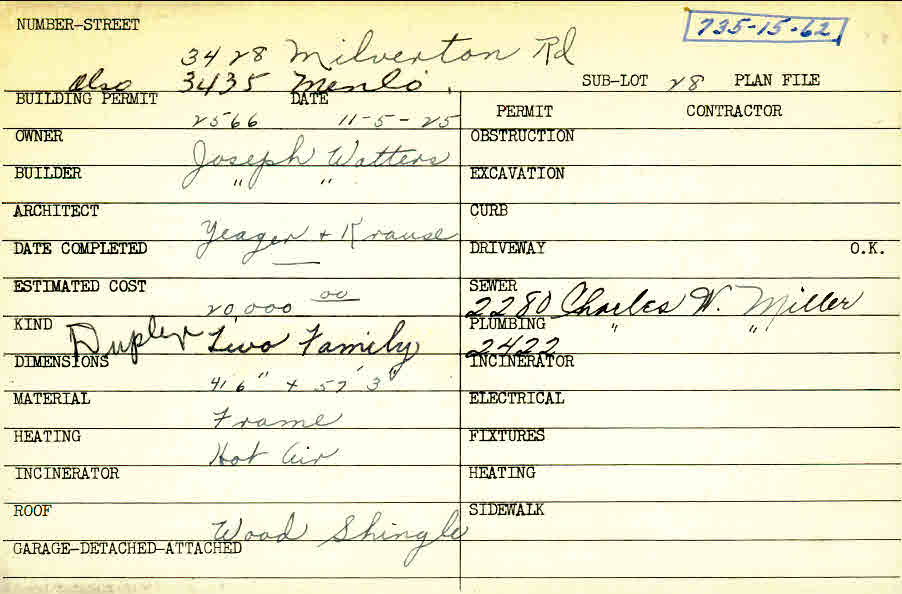 NUMBER-STREET
735-15-62
3428 Milverton Rd
also 3435 Menlo.
SUB-LOT 28 PLAN FILE
BUILDING PERMIT DATE
2566 11-5-25
PERMIT CONTRACTOR
OWNER
Joseph Watters
OBSTRUCTION
BUILDER
" "
EXCAVATION
ARCHITECT
Yeager + Krause
CURB
DATE COMPLETED
—
DRIVEWAY O.K.
ESTIMATED COST
20,000 00
SEWER
2280 Charles W. Miller
KIND
Duplex Two Family
PLUMBING " "
2422
DIMENSIONS
41 6" + 57' 3"
INCINERATOR
MATERIAL
Frame
ELECTRICAL
HEATING
Hot Air
FIXTURES
INCINERATOR
HEATING
ROOF
Wood Shingle
SIDEWALK
GARAGE-DETACHED-ATTACHED